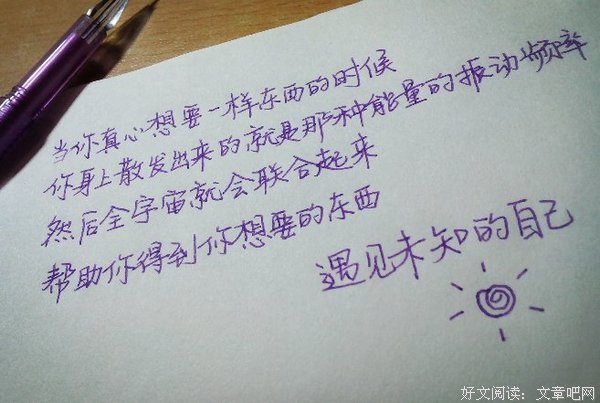 当你真心想要一样东西的时候
你身上散发出来的就是那种能量的振动频率
然后全宇宙就会联合起来
帮助你得到你想要的东西
遇见未知的自己
好文阅读：文章吧网